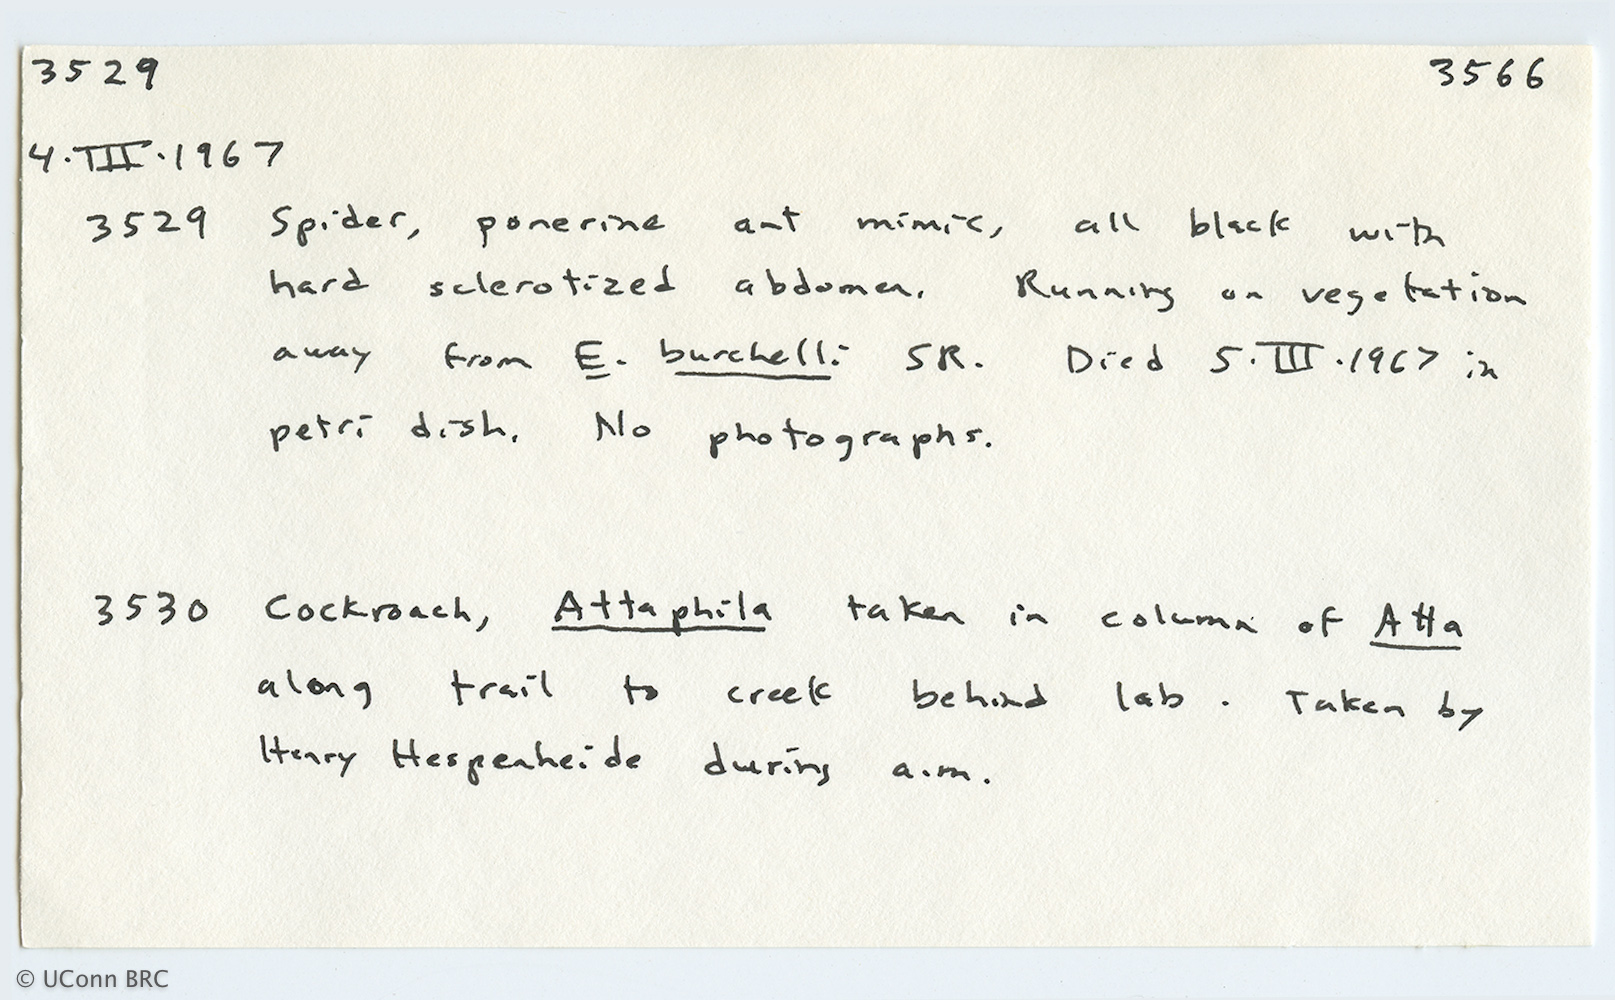 3529 3566
4.III.1967
3529 Spider, ponerine ant mimic, all black with
hard sclerotized abdomen. Running on vegetation
away from E. burchelli SR. Died 5.III.1967 in
petri dish. No photographs.
3530 Cockroach, Attaphila taken in column of Atta
along trail to creek behind lab. Taken by
Henry Hespenheide during a.m.
© UConn BRC